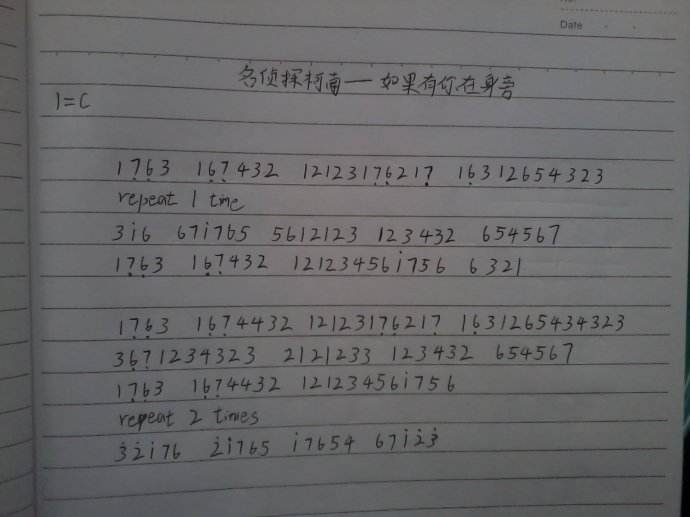 Date
名侦探柯南——如果有你在身旁
1=C
17̣6̣3 16̣7̣432 1212317̣6̣217̣ 16̣312654323
repeat 1 time
3i6 67i765 5612123 123432 654567
17̣6̣3 16̣7̣432 12123456i756 6321
17̣6̣3 16̣7̣4432 1212317̣6̣217̣ 16̣31265434323
36̣7̣1234323 2121233 123432 654567
17̣6̣3 16̣7̣4432 12123456i756
repeat 2 times
3̇2̇i76 2̇i765 i7654 67i2̇3̇